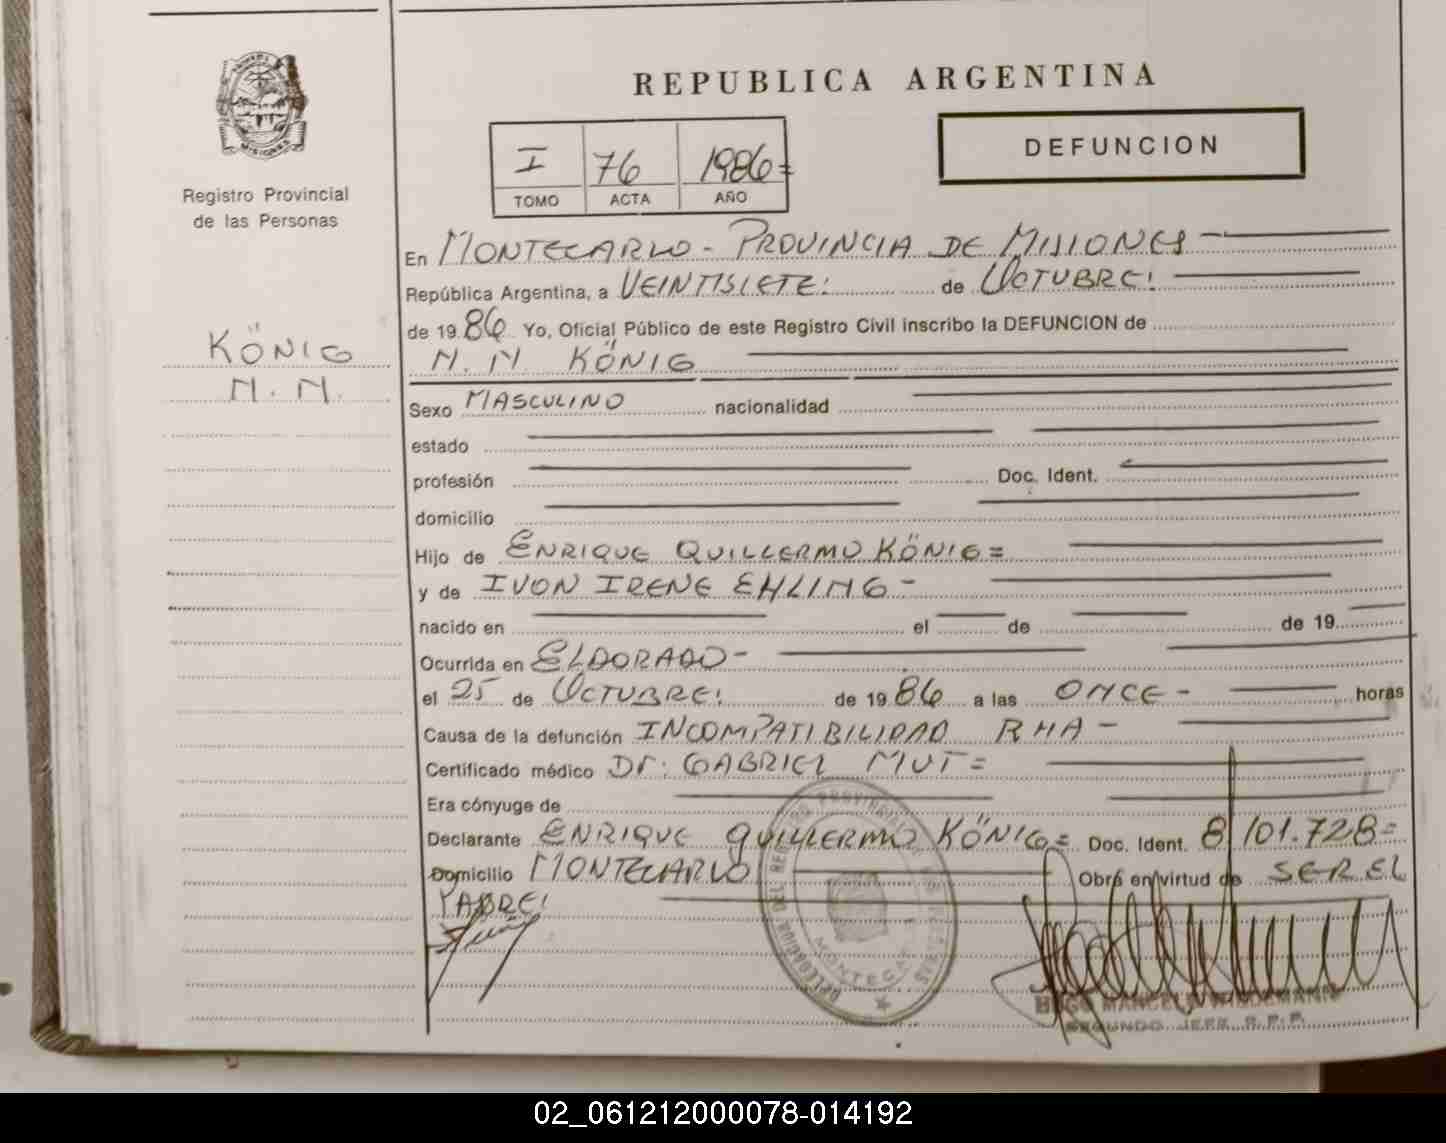 REPUBLICA ARGENTINA
MISIONES
I 76 1986=
TOMO ACTA AÑO
DEFUNCION
Registro Provincial
de las Personas
KÖNIG
N.N.
En MONTECARLO - PROVINCIA DE MISIONES -
República Argentina, a VEINTISIETE: de OCTUBRE:
de 19 86 Yo, Oficial Público de este Registro Civil inscribo la DEFUNCION de
N.N. KÖNIG
Sexo MASCULINO nacionalidad
estado
profesión Doc. Ident.
domicilio
Hijo de ENRIQUE QUILLERMO KÖNIG=
y de IVON IRENE EHLING -
nacido en el de de 19
Ocurrida en ELDORADO -
el 25 de OCTUBRE: de 19 86 a las ONCE - horas
Causa de la defunción INCOMPATIBILIDAD RHA -
Certificado médico Dr. GABRIEL MUT=
Era cónyuge de
Declarante ENRIQUE QUILLERMO KÖNIG= Doc. Ident. 8.101.728=
Domicilio MONTECARLO Obra en virtud de SER EL
PADRE:
DELEGACION DEL REGISTRO PROVINCIAL DE LAS PERSONAS
MONTECARLO
HUGO MARCELO WIDEMANN
SEGUNDO JEFE R.P.P.
02_061212000078-014192